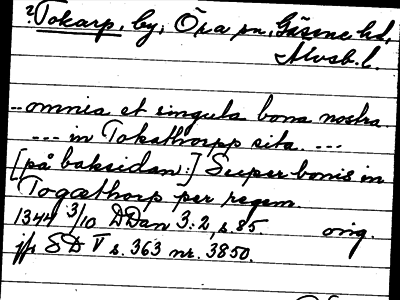 ? Tokarp, by, Öra sn, Gäsene hd,
Älvsb. l.
... omnia et singula bona nostra
--- in Tokathorpp sita. ---
[på baksidan:] Super bonis in
Togæthorp per regem.
1344 3/10 DDan 3:2, s. 85 orig.
jfr SD V s. 363 nr. 3850.